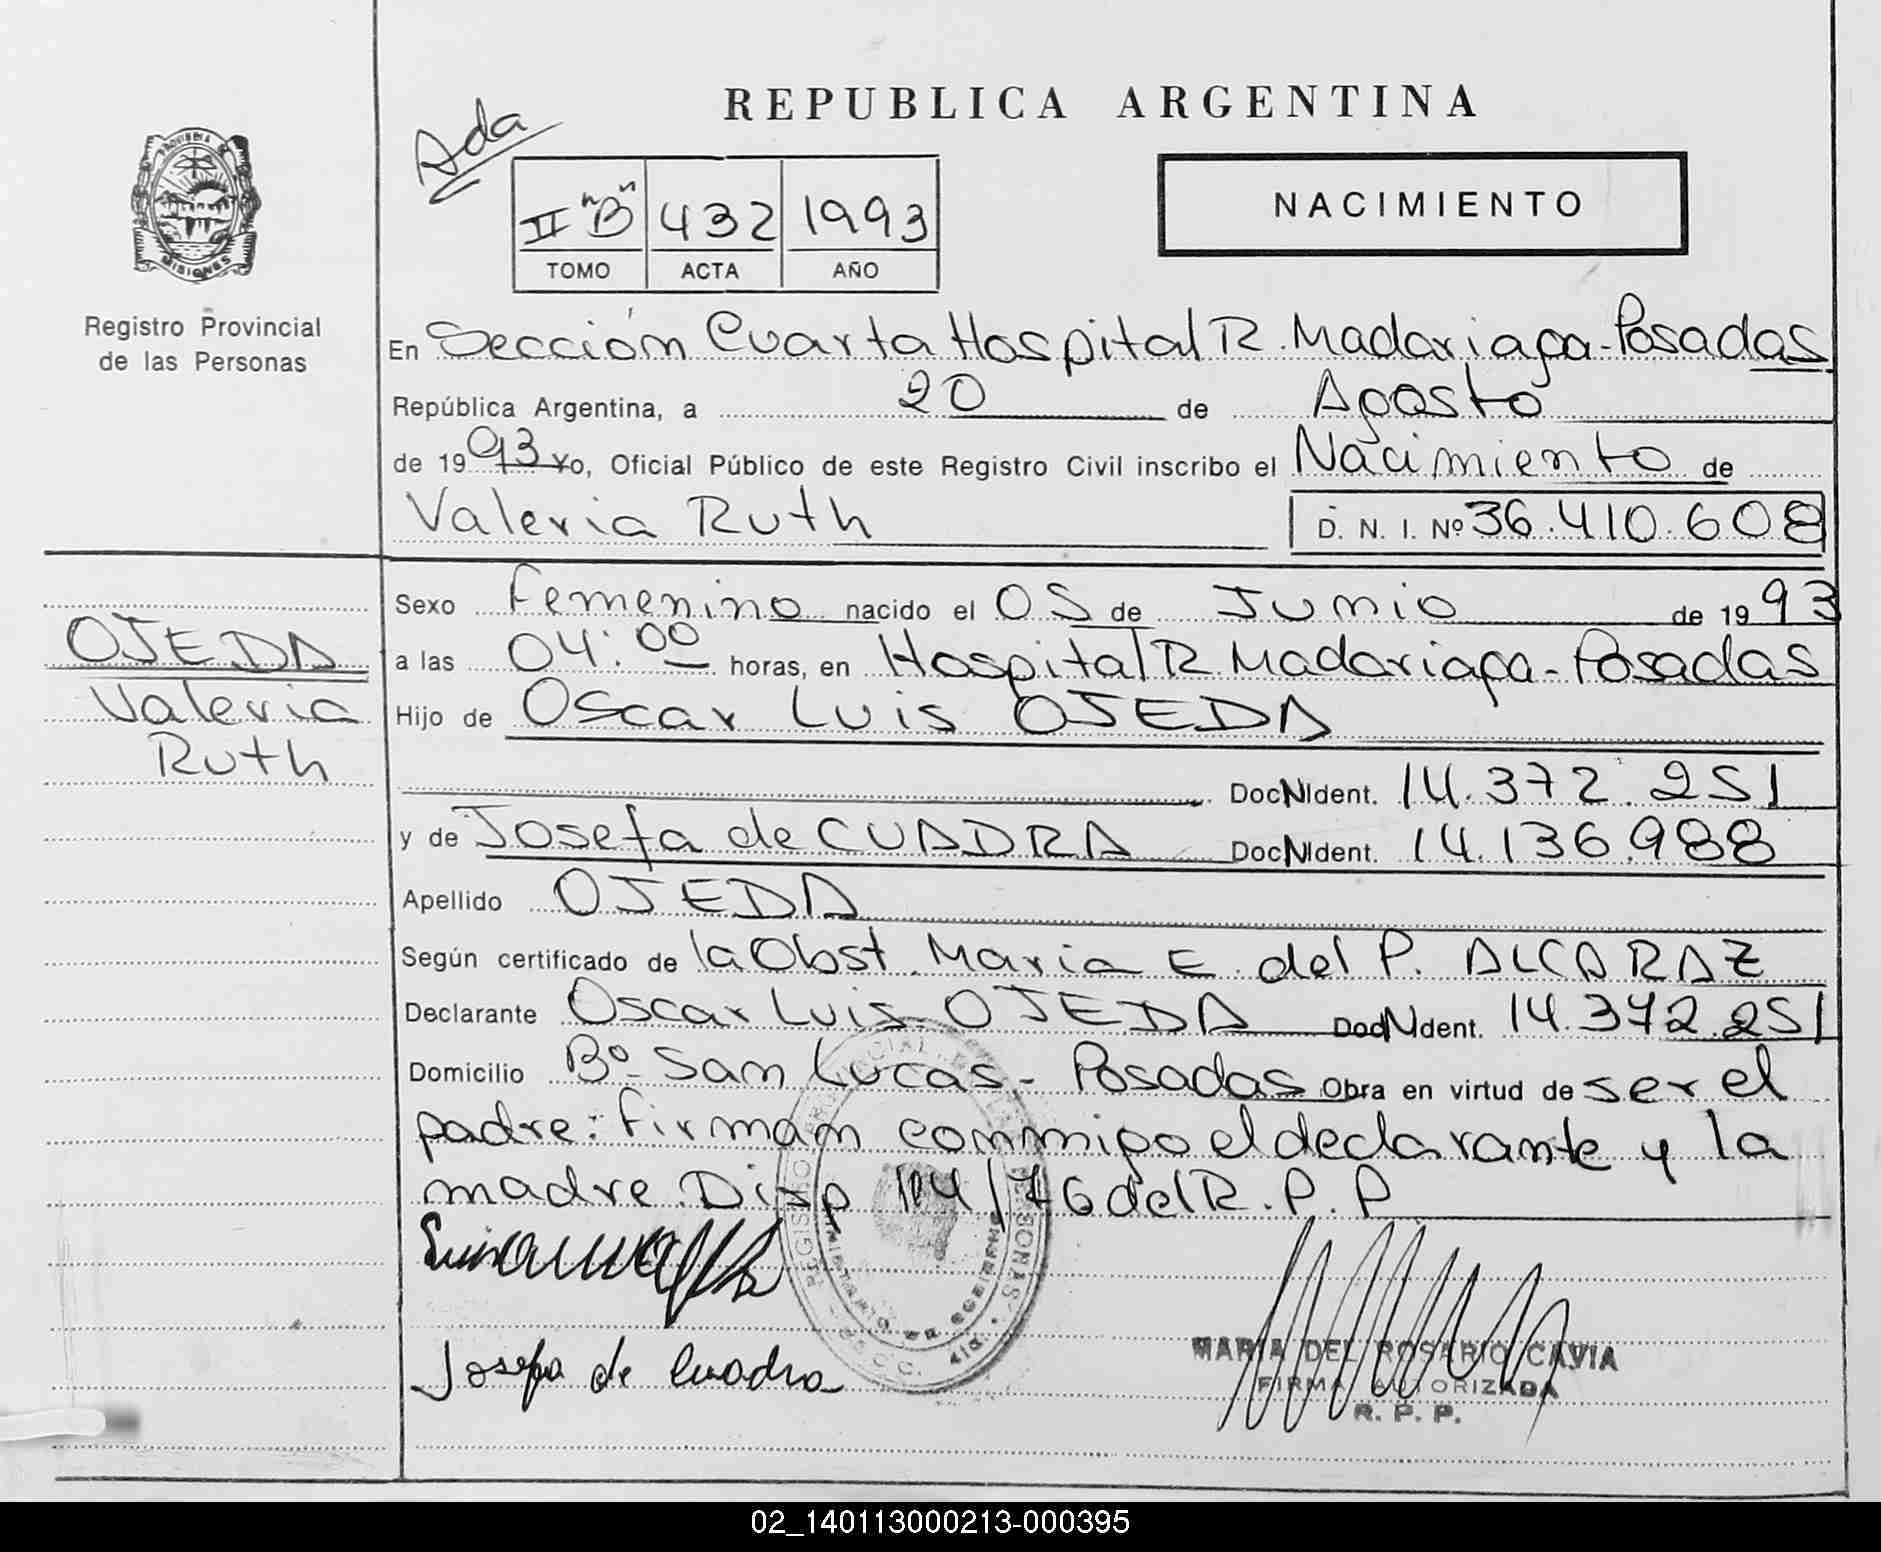 REPUBLICA ARGENTINA
Ada
II "B" 432 1993
TOMO ACTA AÑO
NACIMIENTO
PROVINCIA DE
MISIONES
Registro Provincial
de las Personas
En Sección Cuarta Hospital R. Madariaga-Posadas
República Argentina, a 20 de Agosto
de 1993 Yo, Oficial Público de este Registro Civil inscribo el Nacimiento de
Valeria Ruth D. N. I. Nº 36.410.608
OJEDA
Valeria
Ruth
Sexo Femenino nacido el 05 de Junio de 1993
a las 04:00 horas, en Hospital R. Madariaga-Posadas
Hijo de Oscar Luis OJEDA
Doc N Ident. 14.372.251
y de Josefa de CUADRA Doc N Ident. 14.136.988
Apellido OJEDA
Según certificado de la Obst. Maria E. del P. ALCARAZ
Declarante Oscar Luis OJEDA Doc N Ident. 14.372.251
Domicilio Bº San Lucas - Posadas Obra en virtud de ser el
padre: Firman conmigo el declarante y la
madre. Disp 114/76 del R. P. P
Josefa de Cuadra
MARIA DEL ROSARIO CAVIA
FIRMA AUTORIZADA
R. P. P.
02_140113000213-000395